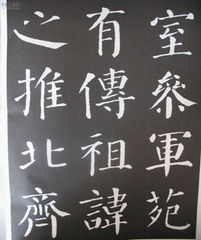 室叅軍苑
有傳祖諱
之推北齊